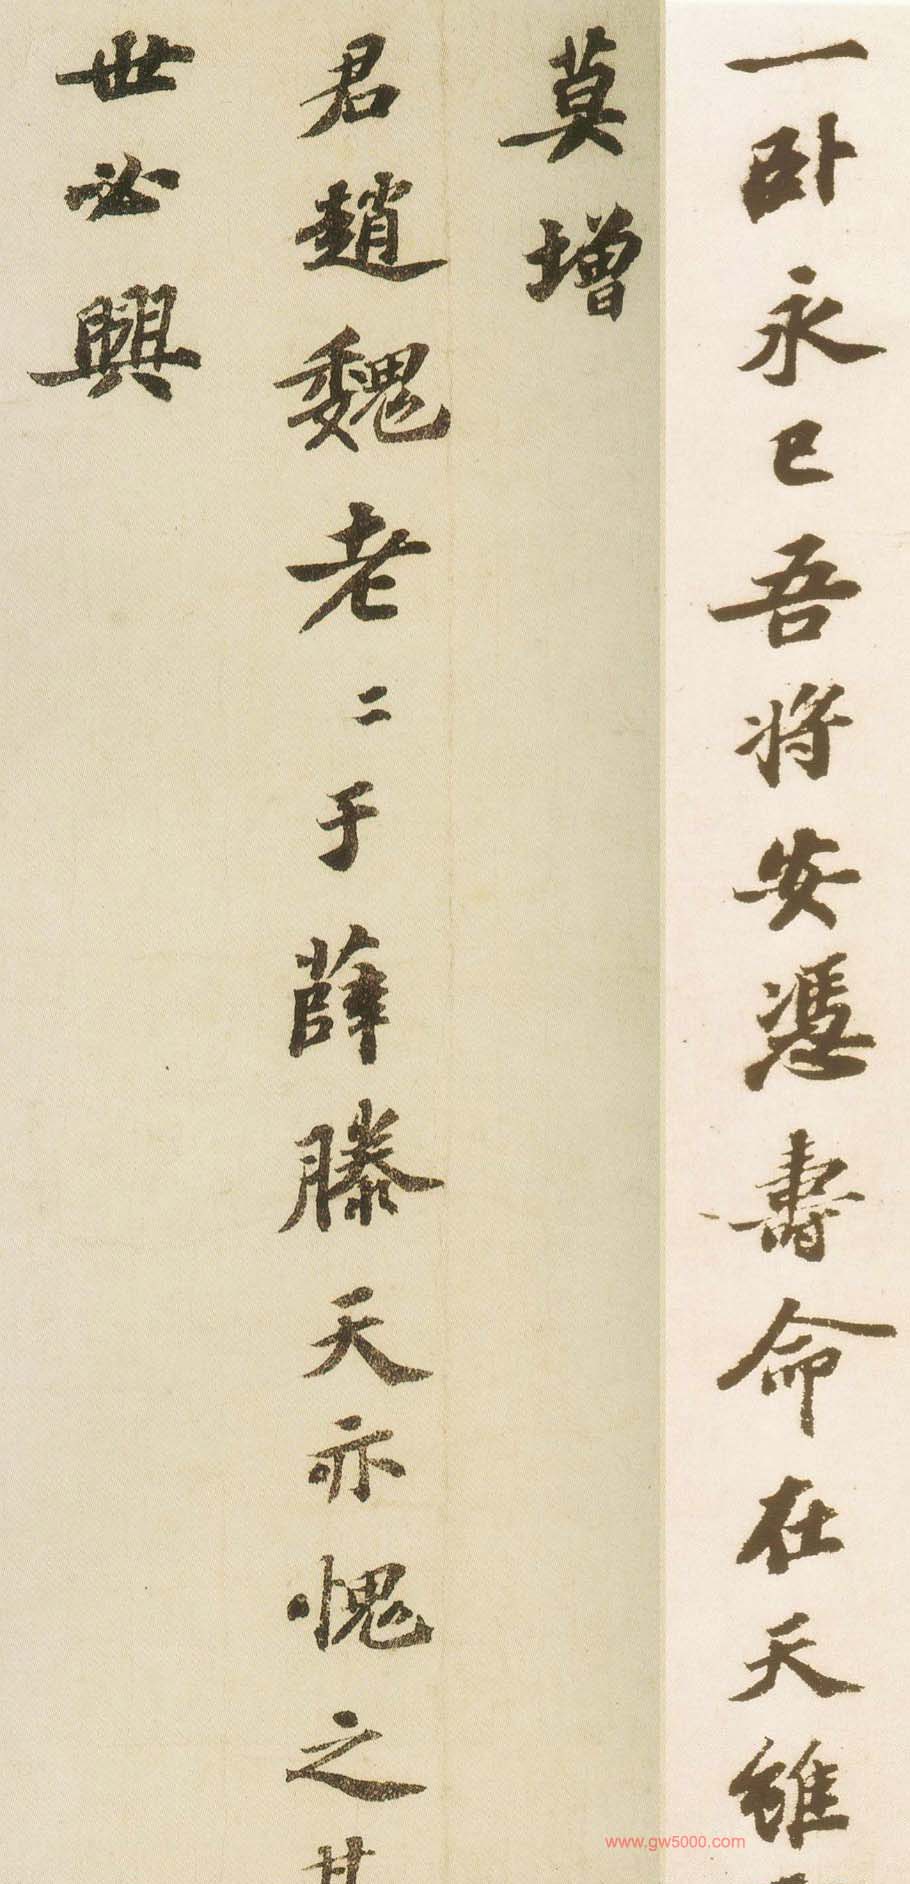 一卧永已吾將安憑壽命在天雖
莫增
君趙魏老二于薛滕天亦愧之
世必興
www.gw5000.com